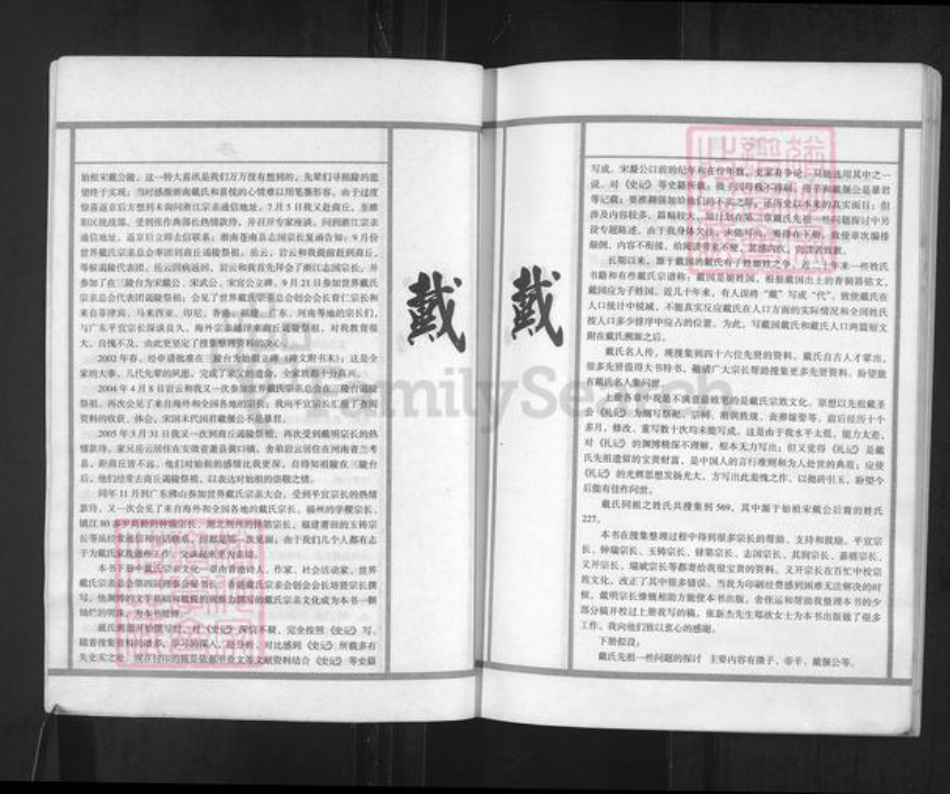 始祖宋戴公陵。这一特大喜讯是我们万万没有想到的。先辈们寻祖陵的愿
望终于实现；当时感激浙南戴氏和喜悦的心情难以用笔墨形容。由于过度
惊喜返京后方想到未询问浙江宗亲通信地址。7月5日我又赴商丘，至睢
阳区统战部，受到张作典部长热情款待，并召开专家座谈。问到浙江宗亲
通信地址。返京后立即去信联系；浙南苍南县志国宗长复函告知：9月份
世界戴氏宗亲总会率团到商丘谒陵祭祖。岳云、岩云和我提前赴到商丘，
等候谒陵代表团。岳云因病返回，岩云和我首先拜会了浙江志国宗长，并
参加了在三陵台为宋戴公、宋武公、宋宣公立碑。9月21日参加世界戴氏
宗亲总会代表团谒陵祭祖；会见了世界戴氏宗亲总会创会会长育仁宗长和
来自菲律宾、马来西亚、印尼、香港、福建、广东、河南等地的宗长们，
与广东平宜宗长深谈良久。海外宗亲越洋来商丘谒陵祭祖，对我教育很
大，自愧不及。由此更坚定了搜集整理资料的决心。
2002年春，经申请批准在三陵台为始祖立碑（碑文附书末）；这是全
家的大事，几代先辈的夙愿，完成了家父的遗命。全家族都十分高兴。
2004年4月8日岩云和我又一次参加世界戴氏宗亲总会在三陵台谒陵
祭祖。再次会见了来自海外和全国各地的宗长；我向平宜宗长汇报了查阅
资料的收获、体会，宋国末代国君戴偃公不是暴君。
2005年3月31日我又一次到商丘谒陵祭祖，再次受到戴明宗长的热
情款待。家兄岳云居住在安徽省萧县黄口镇、舍弟岩云居住在河南省兰考
县，距商丘皆不远，他们对始祖的感情比我更深，自得知祖陵在三陵台
后，他们经常去商丘谒陵祭祖，以表达对始祖的崇敬之情。
同年11月到广东佛山参加世界戴氏宗亲大会。受到平宜宗长的热情
款待，又一次会见了来自海外和全国各地的戴氏宗长。福州的学稷宗长、
镇江80多岁高龄的钟瑞宗长、湖北荆州的绿第宗长、福建莆田的玉铸宗
长等虽经常通信和电话联系，但都是第一次见面；由于我们几个人都有志
于为戴氏家族做些工作，交谈起来更为亲切。
本书下册中戴氏宗亲文化一章由香港诗人、作家、社会活动家、世界
戴氏宗亲总会第四届理事会秘书长、香港戴氏宗亲会创会会长培贤宗长撰
灿烂的明珠，为本书增辉。
戴氏溯源开始撰写时，对《史记》深信不疑，完全按照《史记》写。
随着搜集资料的增多、学习的深入，经分析、对比感到《史记》所载多有
失史实之处。现在付印的稿是依据甲骨文等文献资料结合《史记》等史籍
戴
戴
写成。宋戴公以前的纪年和在位年数，史家有争论，只能选用其中之一
说。对《史记》等史籍所载：微子因母贱不得嗣、帝辛和戴偃公是暴君
等记载；要推翻强加给他们的不实之辞，还历史以本来的真实面目；但
涉及内容较多，篇幅较大，原计划在第二章戴氏先祖一些问题探讨中另
设专题陈述。由于我身体欠佳，未能写出，要排在下册，致使章次编排
颠倒，内容不衔接，给阅读带来不便，甚感内疚，向读者致歉。
长期以来，源于戴国的戴氏有子姓姬姓之争。近二十年来一些姓氏
书籍和有些戴氏宗谱称：戴国是姬姓国。根据戴国出土的青铜器铭文，
戴国应为子姓国。近几十年来，有人误将“戴”写成“代”，致使戴氏在
人口统计中锐减，不能真实反应戴氏在人口方面的实际情况和全国姓氏
按人口多少排序中应占的位置。为此，写戴国戴氏和戴氏人口两篇短文
附在戴氏溯源之后。
戴氏名人传，现搜集到四十六位先贤的资料。戴氏自古人才辈出，
很多先贤值得大书特书。敬请广大宗长帮助搜集更多先贤资料。盼望能
有戴氏名人集问世。
上册各章中我最不满意最败笔的是戴氏宗族文化。原想以先祖戴圣
公《礼记》为纲写祭祀、宗祠、附居教规、丧葬嫁娶等。前后经历十个
多月，修改、重写数十次均未能写成。这是由于我水平太低，能力太差，
对《礼记》的渊博精深不理解，根本无力写出；但又觉得《礼记》是戴
氏先祖遗留的宝贵财富，是中国人的言行准则和为人处世的典范；应使
《礼记》的光辉思想发扬光大，方写出此遗愧之作。以抛砖引玉，盼望今
后能有佳作问世。
戴氏同祖之姓氏共搜集到569，其中源于始祖宋戴公后裔的姓氏
227。
本书在搜集整理过程中得到很多宗长的帮助、支持和鼓励。平宜宗
长、钟瑞宗长、玉铸宗长、绿第宗长、志国宗长、其润宗长、嘉禧宗长、
又开宗长、瑞威宗长等都寄给我很宝贵的资料。又开宗长在百忙中校宗
族文化，改正了其中很多错误。当我为印刷经费感到困难无法解决的时
候，戴明宗长慷慨相助方能使本书出版。舍侄运和帮助我整理本书的少
部分稿并校过上册我写的稿。张新杰先生郑欣女士为本书出版做了很多
工作。我向他们致以衷心的感谢。
下册拟设：
戴氏先祖一些问题的探讨 主要内容有微子、帝辛、戴偃公等。
FamilySearch